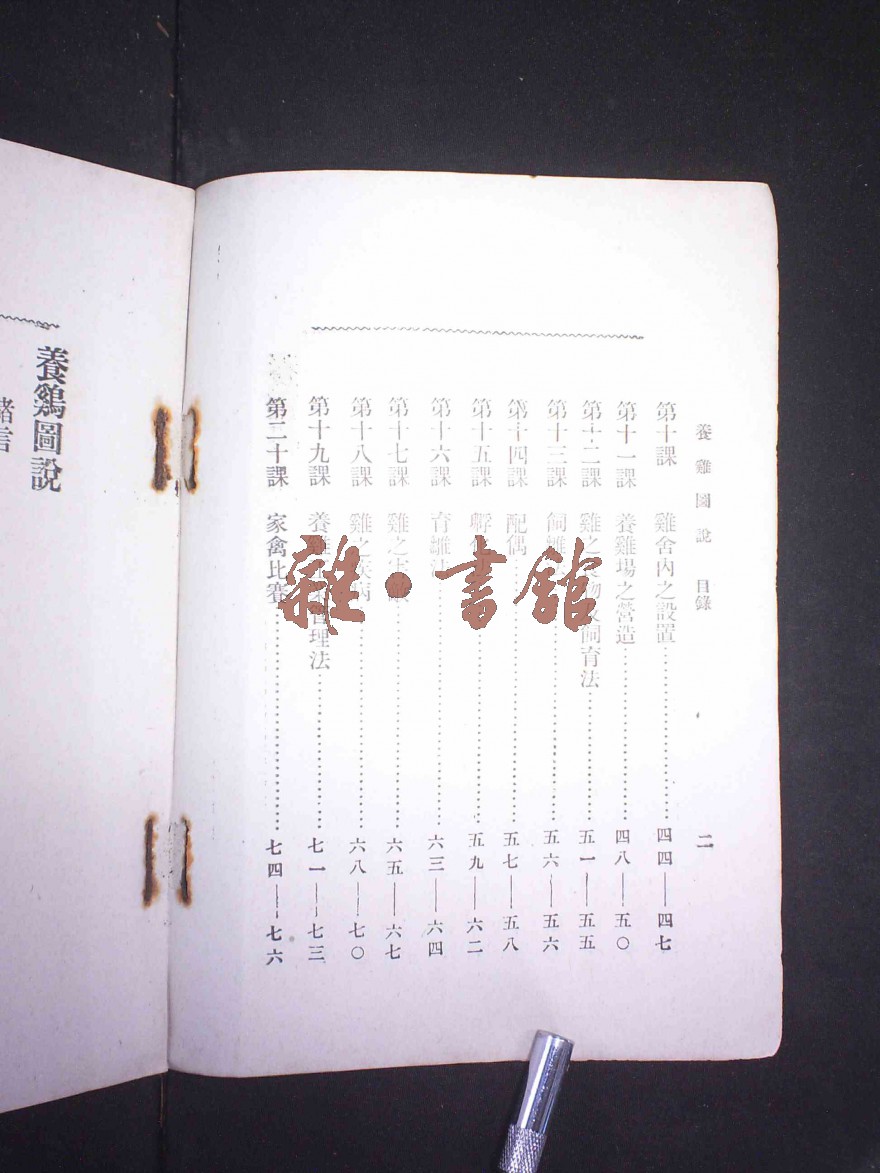 養雞圖說 目錄 二
第十課 雞舍內之設置 四四——四七
第十一課 養雞場之營造 四八——五〇
第十二課 雞之食物及飼育法 五一——五五
第十三課 飼雛 五六——五六
第十四課 配偶 五七——五八
第十五課 孵 五九——六二
第十六課 育雛法 六三——六四
第十七課 雞之 六五——六七
第十八課 雞之疾病 六八——七〇
第十九課 養雞 管理法 七一——七三
第二十課 家禽比賽 七四——七六
養鷄圖說
緒言
雜·書館